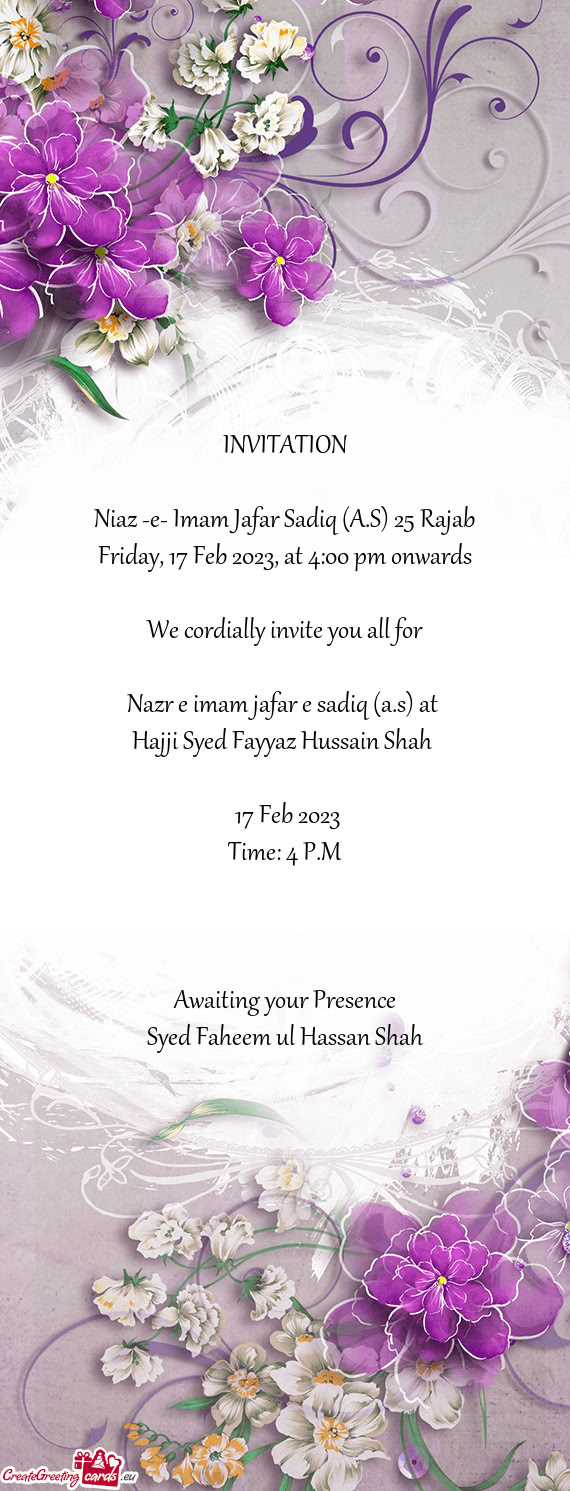 INVITATION
Niaz -e- Imam Jafar Sadiq (A.S) 25 Rajab
Friday, 17 Feb 2023, at 4:00 pm onwards
We cordially invite you all for
Nazr e imam jafar e sadiq (a.s) at
Hajji Syed Fayyaz Hussain Shah
17 Feb 2023
Time: 4 P.M
Awaiting your Presence
Syed Faheem ul Hassan Shah
CreateGreeting cards .eu